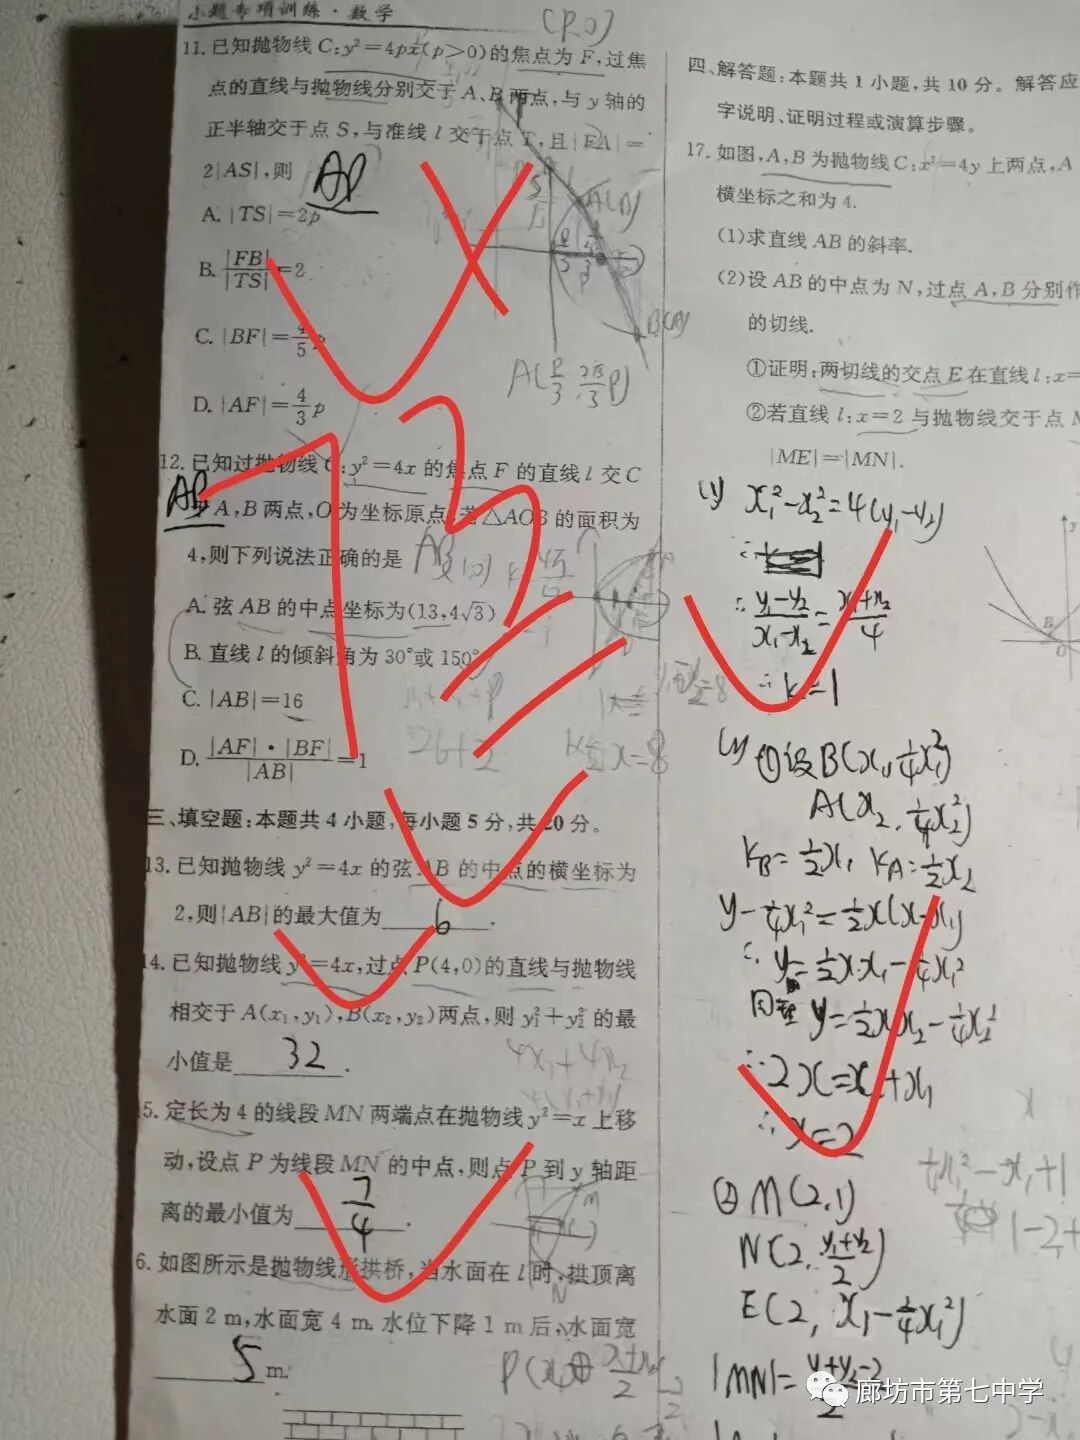 小题专项训练·数学
(P,0)
11.已知抛物线C:y²=4px(p>0)的焦点为F,过焦
点的直线与抛物线分别交于A、B两点,与y轴的
正半轴交于点S,与准线l交于点T,且|FA|=
2|AS|,则
A.|TS|=2p
B.|FB|/|TS|=2
C.|BF|=4/5p
D.|AF|=4/3p
12.已知过抛物线C:y²=4x的焦点F的直线l交C
于A,B两点,O为坐标原点,若△AOB的面积为
4,则下列说法正确的是
A.弦AB的中点坐标为(13,4√3)
B.直线l的倾斜角为30°或150°
C.|AB|=16
D.|AF|·|BF|/|AB|=1
73
三、填空题:本题共4小题,每小题5分,共20分。
13.已知抛物线y²=4x的弦AB的中点的横坐标为
2,则|AB|的最大值为 6 .
14.已知抛物线y²=4x,过点P(4,0)的直线与抛物线
相交于A(x₁,y₁),B(x₂,y₂)两点,则y₁²+y₂²的最
小值是 32 .
5.定长为4的线段MN两端点在抛物线y²=x上移
动,设点P为线段MN的中点,则点P到y轴距
离的最小值为 7/4 .
6.如图所示是抛物线形拱桥,当水面在l时,拱顶离
水面2m,水面宽4m.水位下降1m后,水面宽
5 m.
四、解答题:本题共1小题,共10分。解答应
字说明、证明过程或演算步骤。
17.如图,A,B为抛物线C:x²=4y上两点,A
横坐标之和为4.
(1)求直线AB的斜率.
(2)设AB的中点为N,过点A,B分别作
的切线.
①证明:两切线的交点E在直线l:x=
②若直线l:x=2与抛物线交于点M
|ME|=|MN|.
(1) x₁²-x₂²=4(y₁-y₂)
∴(y₁-y₂)/(x₁-x₂)=(x₁+x₂)/4
∴k=1
(2)①设B(x₁,1/4x₁²)
A(x₂,1/4x₂²)
kB=1/2x₁ kA=1/2x₂
y-1/4x₁²=1/2x₁(x-x₁)
∴y=1/2x·x₁-1/4x₁²
同理 y=1/2x·x₂-1/4x₂²
∴2x=x₂+x₁
∴x=2
②M(2,1)
N(2,(y₁+y₂)/2)
E(2,x₁-1/4x₁²)
|MN|=(y₁+y₂-2)/2
廊坊市第七中学